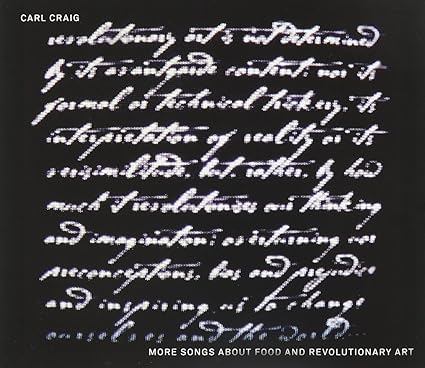 CARL CRAIG
revolutionary art is not determined
by its avantgarde content; nor its
formal or technical trickery, its
interpretation of reality or its
verisimilitude, but, rather, by how
much it revolutionizes our thinking
and imagination; overturning our
preconceptions, bias and prejudice
and inspiring us to change
ourselves and the world...
MORE SONGS ABOUT FOOD AND REVOLUTIONARY ART